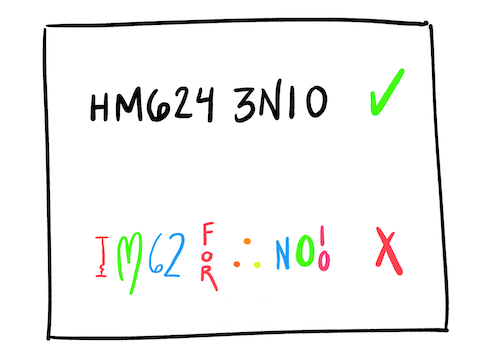 HM624 3N10 ✓
IM62 FOR ∴ NO! O X